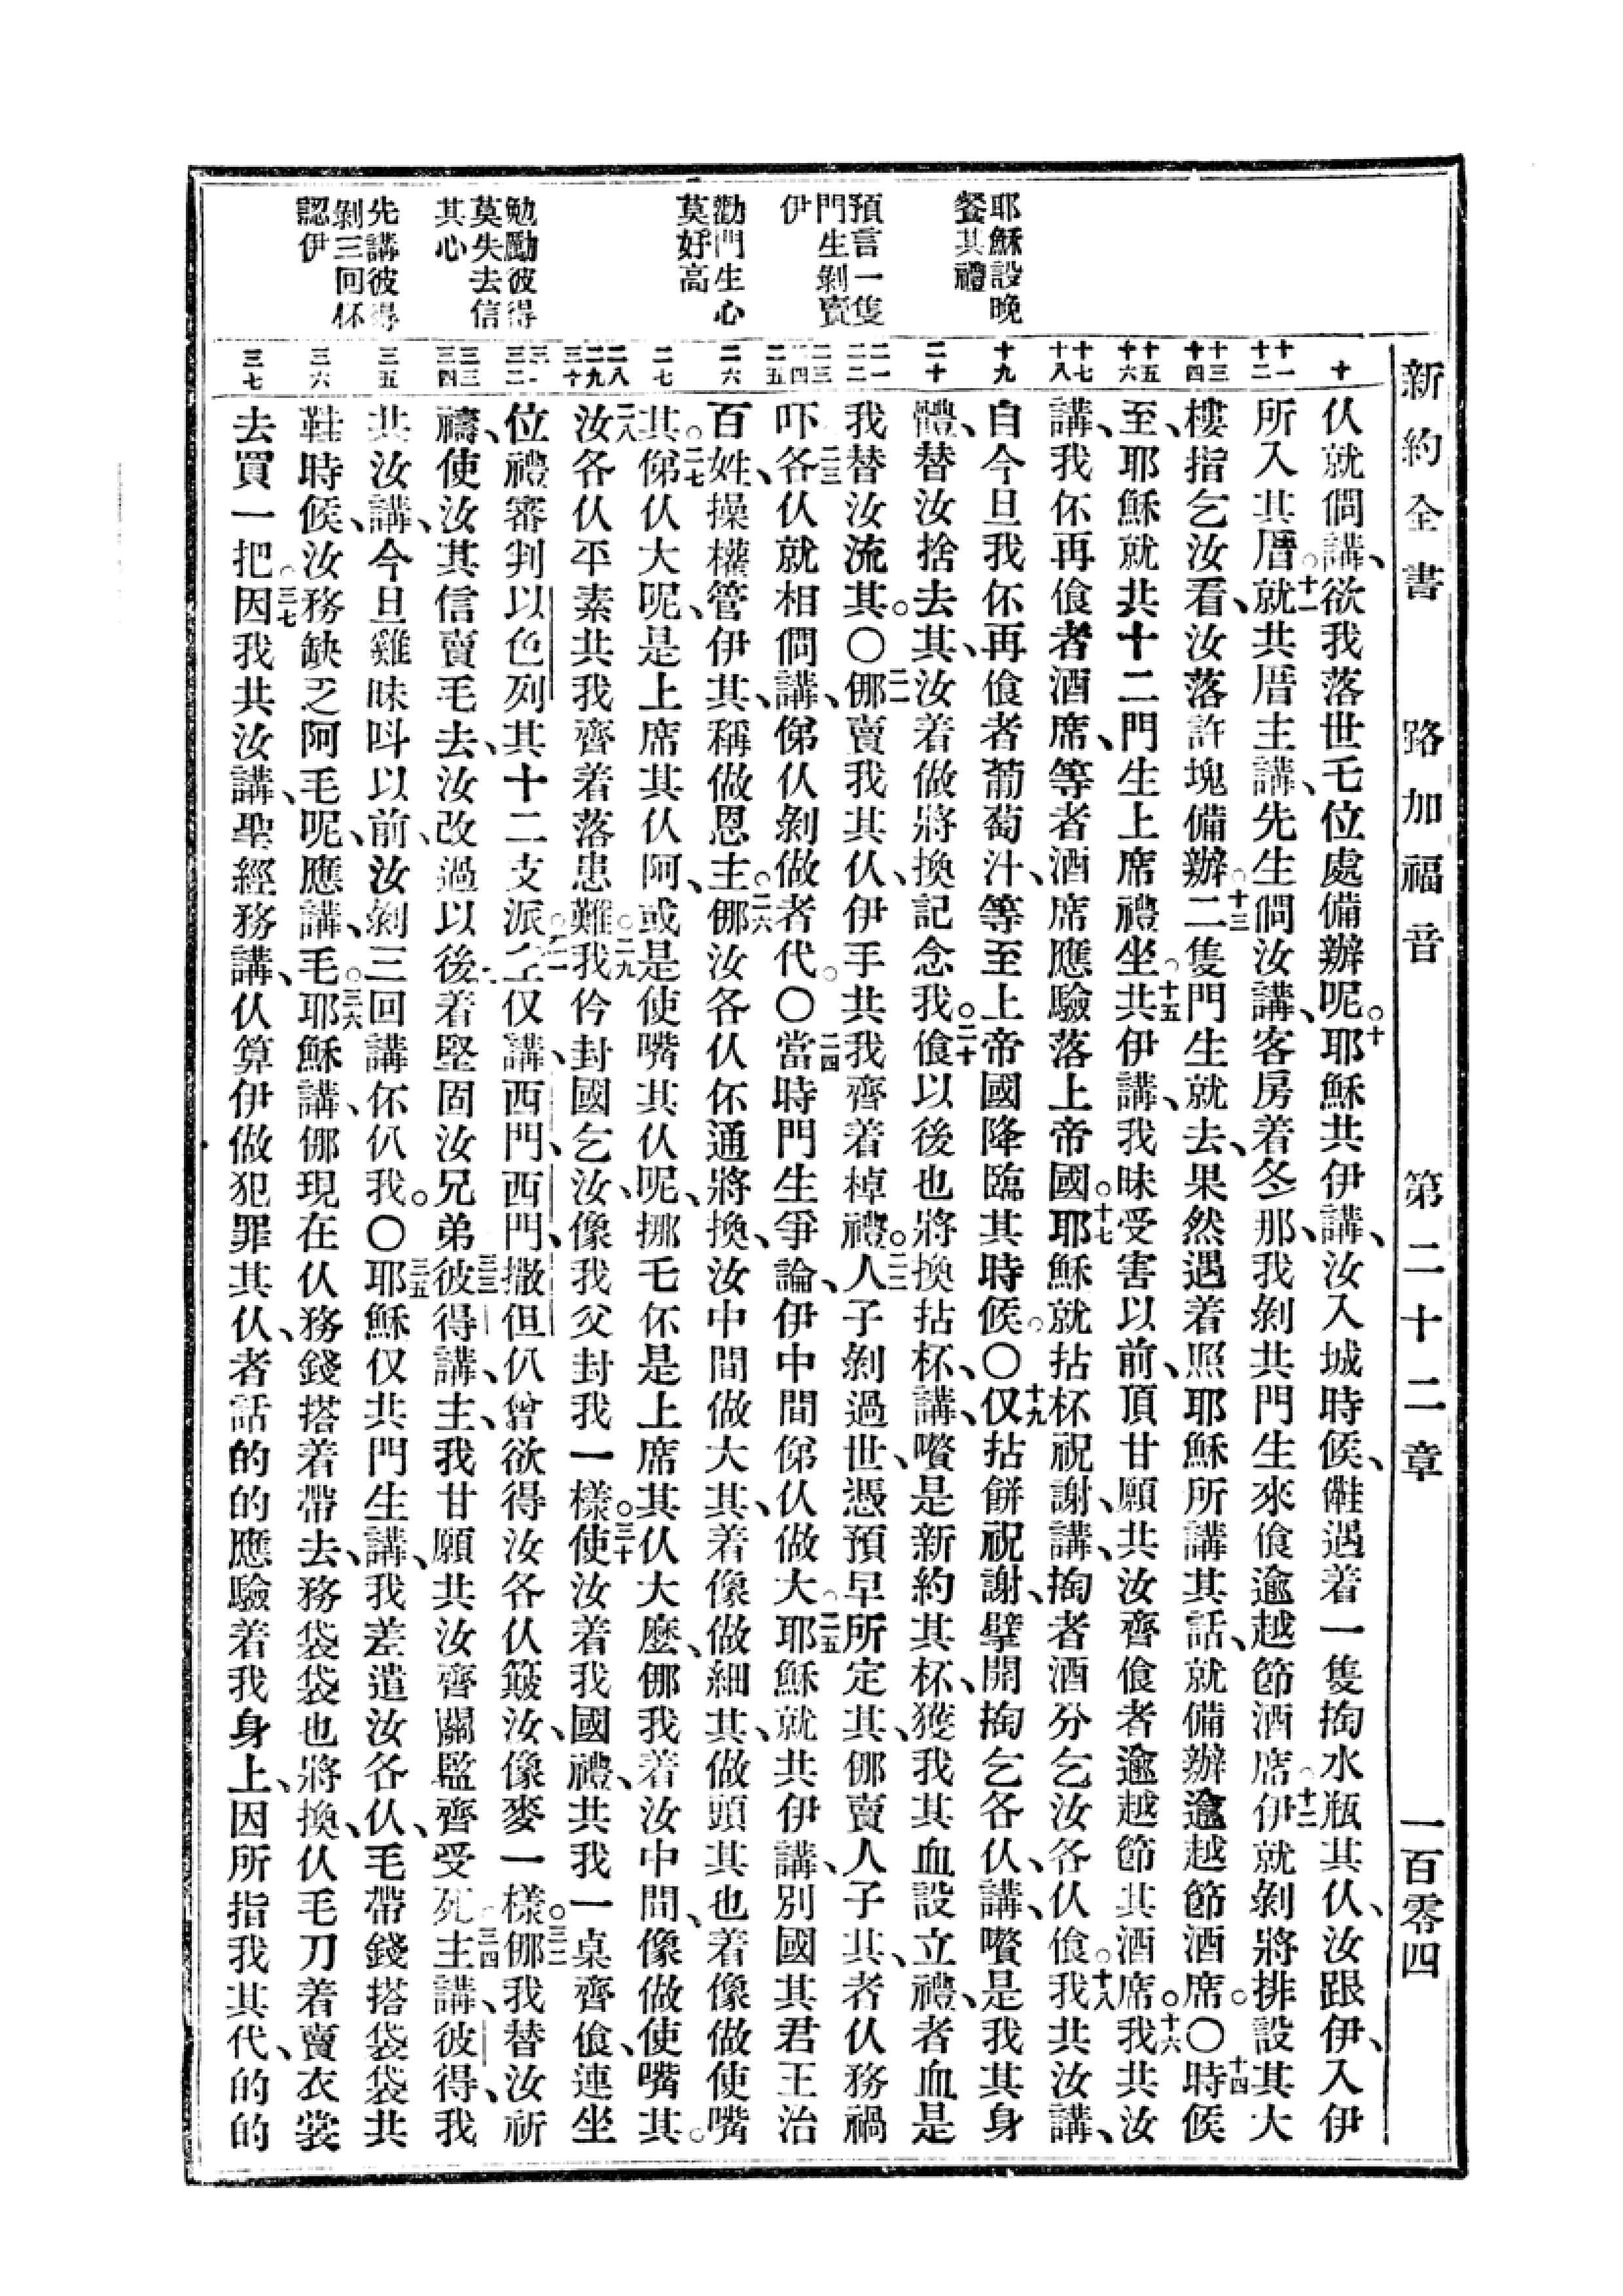 新約全書 路加福音 第二十二章 一百零四
耶穌設晚
餐其禮
預言一隻
門生剝賣
伊
勸門生心
莫好高
勉勵彼得
莫失去信
其心
先講彼得
剝三回伓
認伊
十
十一
十二
十三
十四
十五
十六
十七
十八
十九
二十
二一
二二
二三
二四
二五
二六
二七
二八
二九
三十
三一
三二
三三
三四
三五
三六
三七
仈就僩講、欲我落世乇位處備辦呢。十耶穌共伊講、汝入城時候、儺遇着一隻掏水瓶其仈、汝跟伊、入伊
所入其厝、十一就共厝主講、先生僩汝講、客房着冬那、我剝共門生來飠逾越節酒席。十二伊就剝將排設其大
樓指乞汝看、汝落許塊備辦。十三二隻門生就去、果然遇着照耶穌所講其話、就備辦逾越節酒席。〇十四時候
至、耶穌就共十二門生上席禮坐。十五共伊講、我昧受害以前、頂甘願共汝齊飠者逾越節其酒席。十六我共汝
講、我伓再飠者酒席、等者酒席應驗落上帝國。十七耶穌就拈杯祝謝、講、掏者酒分乞汝各仈飠。十八我共汝講、
自今旦我伓再飠者葡萄汁、等至上帝國降臨其時候。〇十九仅拈餅祝謝、擘開掏乞各仈、講、嚽是我其身
體、替汝捨去其、汝着做將換記念我。二十飠以後也將換拈杯、講、嚽是新約其杯、獲我其血設立禮、者血是
我替汝流其。〇二一僩賣我其仈、伊手共我齊着棹禮。二二人子剝過世、憑預早所定其、僩賣人子其、者仈務禍
吓。二三各仈就相僩講、俤仈剝做者代。〇二四當時門生爭論、伊中間俤仈做大。二五耶穌就共伊講、別國其君王治
百姓、操權管伊其、稱做恩主。二六僩汝各仈伓通將換、汝中間做大其、着像做細其、做頭其也着像做使嘴
其。二七俤仈大呢、是上席其仈阿、或是使嘴其仈呢、挪乇伓是上席其仈大麽、僩我着汝中間、像做使嘴其。
二八汝各仈平素共我齊着落患難。二九我仱封國乞汝、像我父封我一樣。三十使汝着我國禮、共我一桌齊飠、連坐
位禮審判以色列其十二支派。三一主仅講、西門、西門、撒但仈曾欲得汝各仈簸汝、像麥一樣。三二僩我替汝祈
禱、使汝其信賣毛去、汝改過以後、着堅固汝兄弟。三三彼得講、主、我甘願共汝齊關監齊受死。三四主講、彼得、我
共汝講、今旦雞昧呌以前、汝剝三回講伓仈我。〇三五耶穌仅共門生講、我差遣汝各仈、毛帶錢搭袋袋共
鞋時候、汝務缺乏阿毛呢、應講、毛。三六耶穌講、僩現在仈務錢搭着帶去、務袋袋也將換、仈毛刀着賣衣裳
去買一把。三七因我共汝講、聖經務講、仈算伊做犯罪其仈、者話的的應驗着我身上、因所指我其代、的的